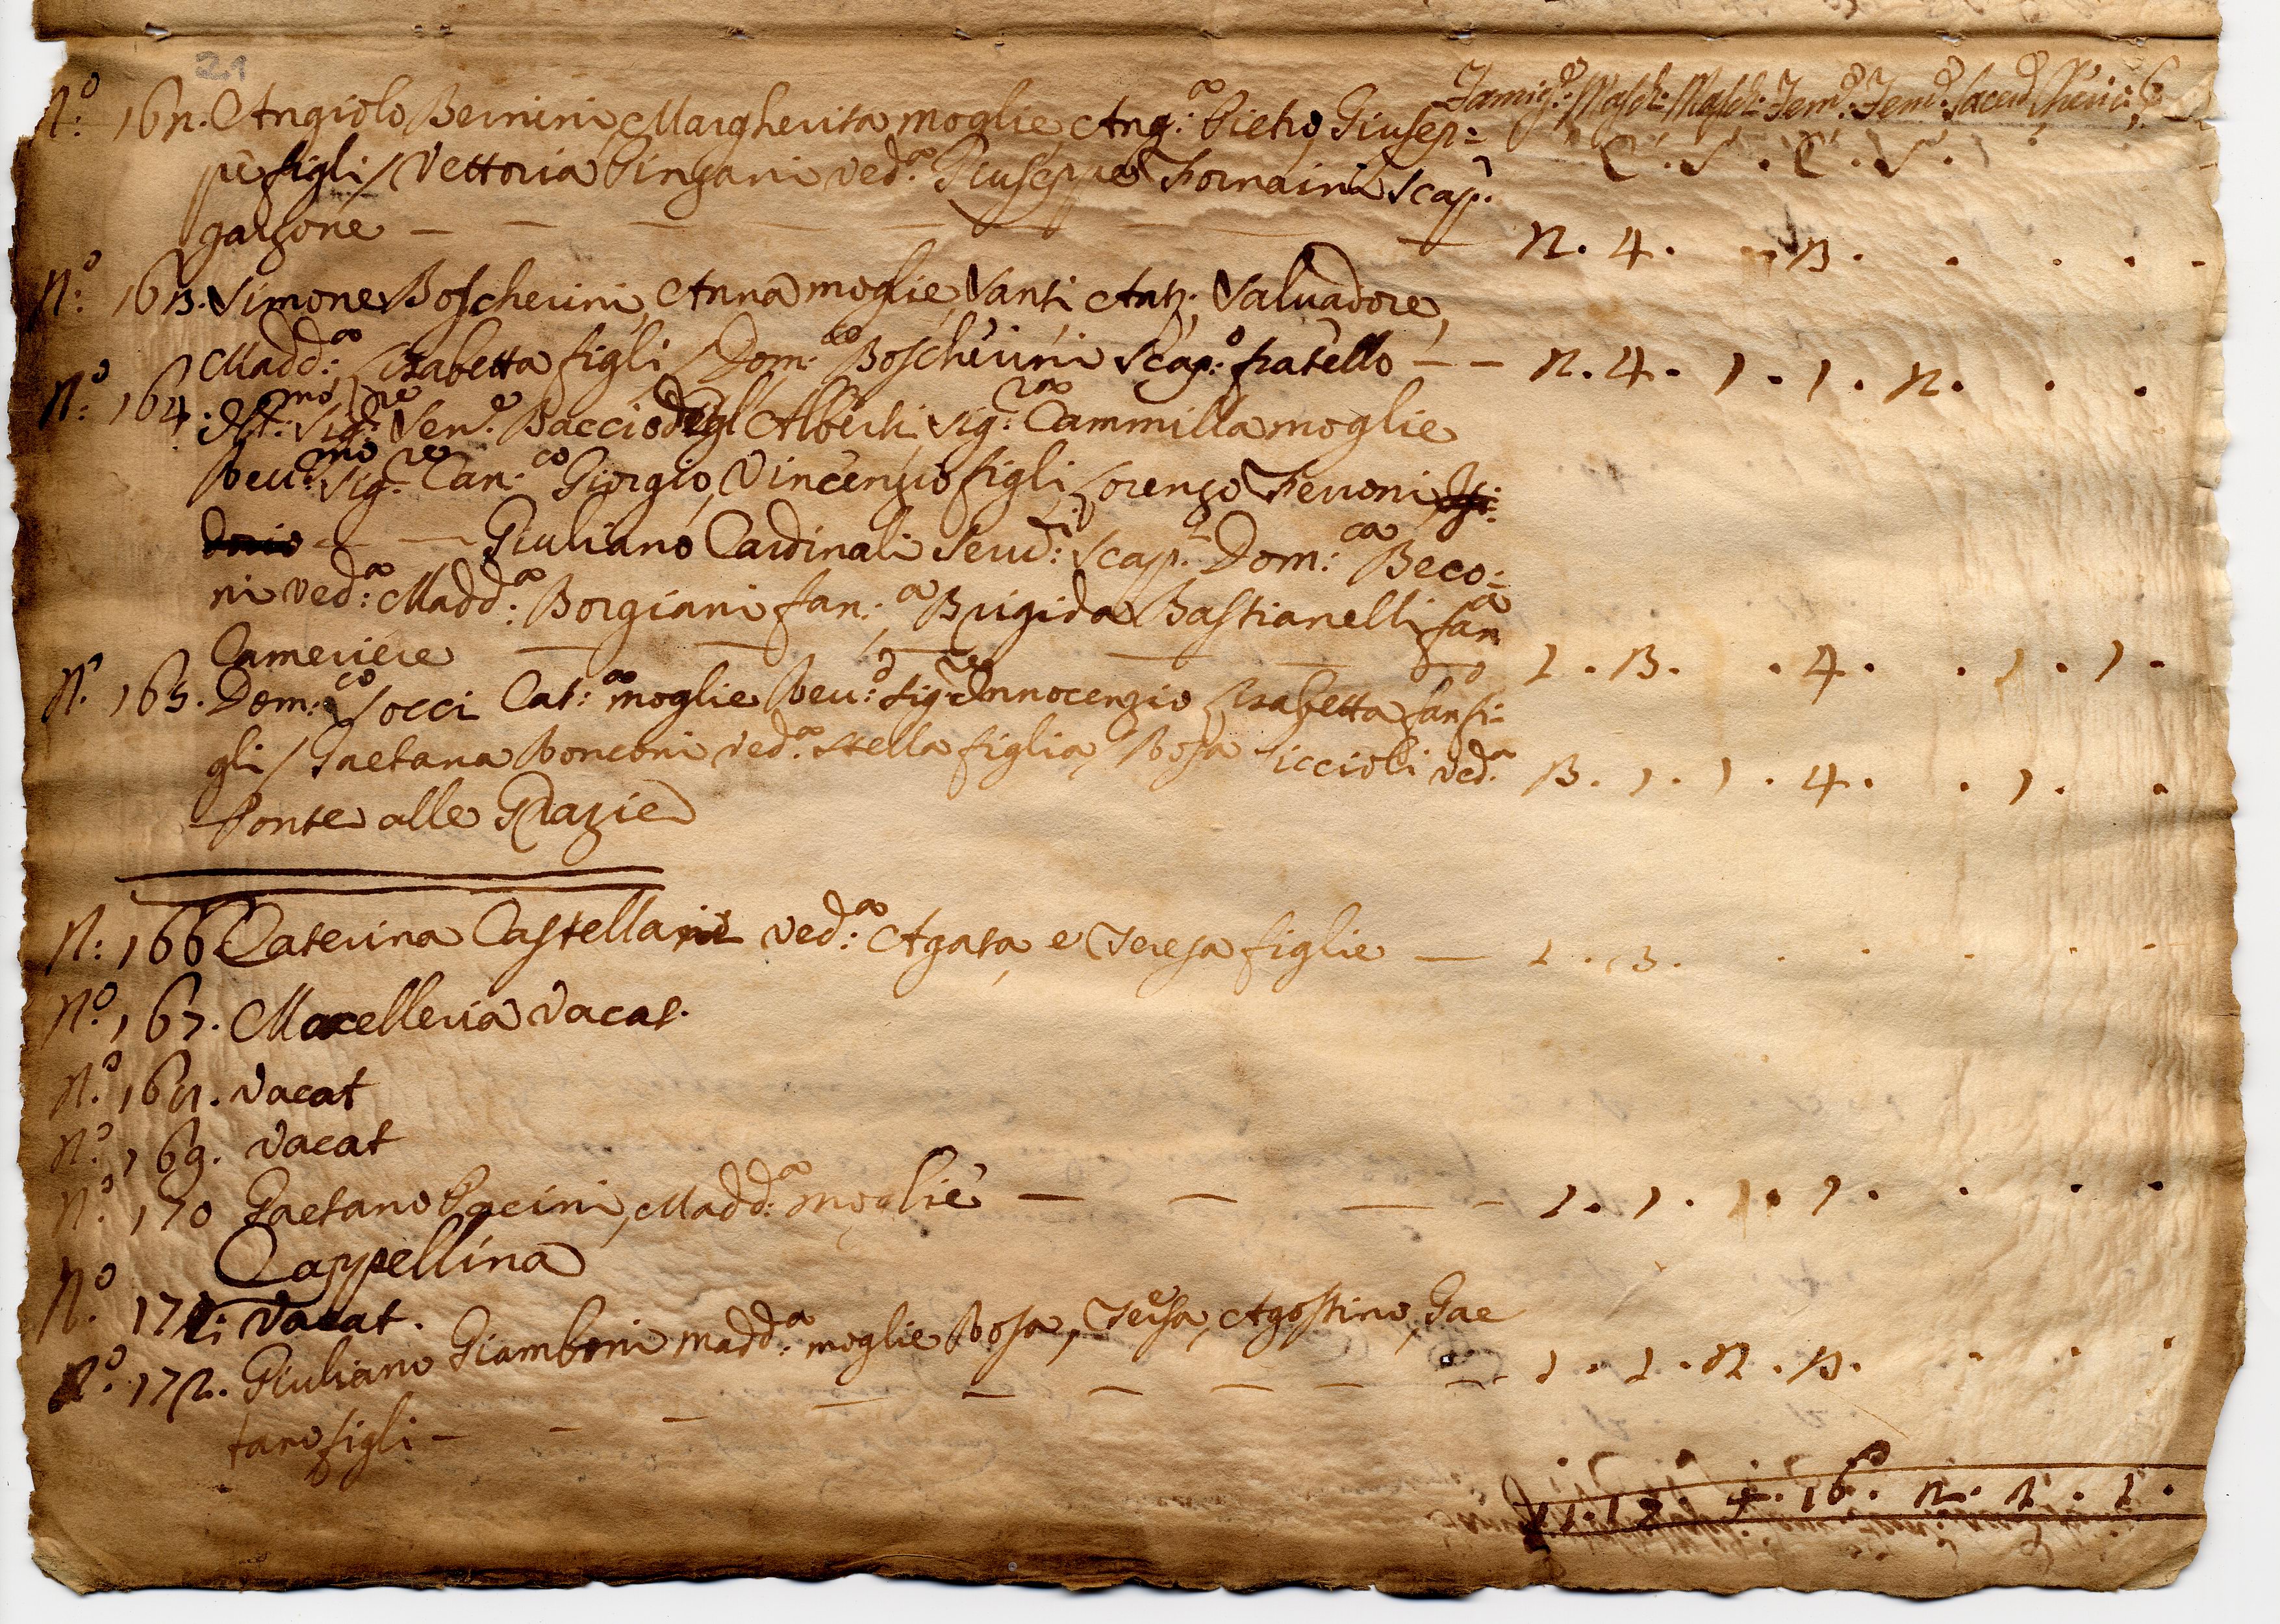 21
Famig.e Masch: Masch: Fem.e Fem.e Sacerd. Cheric:
C. S. C. S.
N.o 162. Angiolo Bernini, Margherita moglie, Ang.a Pietro, Giusep=
pe figli / Vettoria Pingani ved.a Giuseppe Fornaini scap.
garzone — — — — — — 2. 4. . 3. . . . .
N.o 163. Simone Boscherini, Anna moglie, Santi Ant.o, Salvadore,
Madd:a Lisabetta figli / Dom:co Boscherini scap:o fratello — — 2. 4. 1. 1. 2. . .
N.o 164. Ill:mo Sig:re Sen.e Baccio degl'Alberti Sig:ra Cammilla moglie
Reu:mo Sig:re Can:co Giorgio, Vincenzio figli, Lorenzo Ferroni
— — Giuliano Cardinali Serv:i scap.i Dom:ca Beco=
ni ved:a Madd:a Borgiani fan:a Brigida Bastianelli fan:a
Cameriere — — — — — — 1. 3. . 4. . 1. 1.
N. 165. Dom:co Socci Cat:a moglie Reu:do Sig:re Innocenzio Lisabetta fan fi=
gli / Gaetana Ronconi ved.a Stella figlia, Rosa Piccioli ved.a 3. 1. 1. 4. . 1. .
Ponte alle Grazie
N: 166 Caterina Castellani ved:a Agata, e Teresa figlie — 1. 3. . . . . .
N.o 167. Macelleria vacat.
N.o 168. Vacat
N.o 169. Vacat
N.o 170 Gaetano Pacini, Madd:a moglie — — — — 1. 1. 1. 1. . . .
Cappellina
N.o 171: Vacat.
N.o 172. Giuliano Giamboni Madd:a moglie Rosa, Teresa, Agostino, Gae
tano figli — — — — — — — — 1. 1. 2. 3. . . .
11. 17 4. 16. 2. 2. 1.